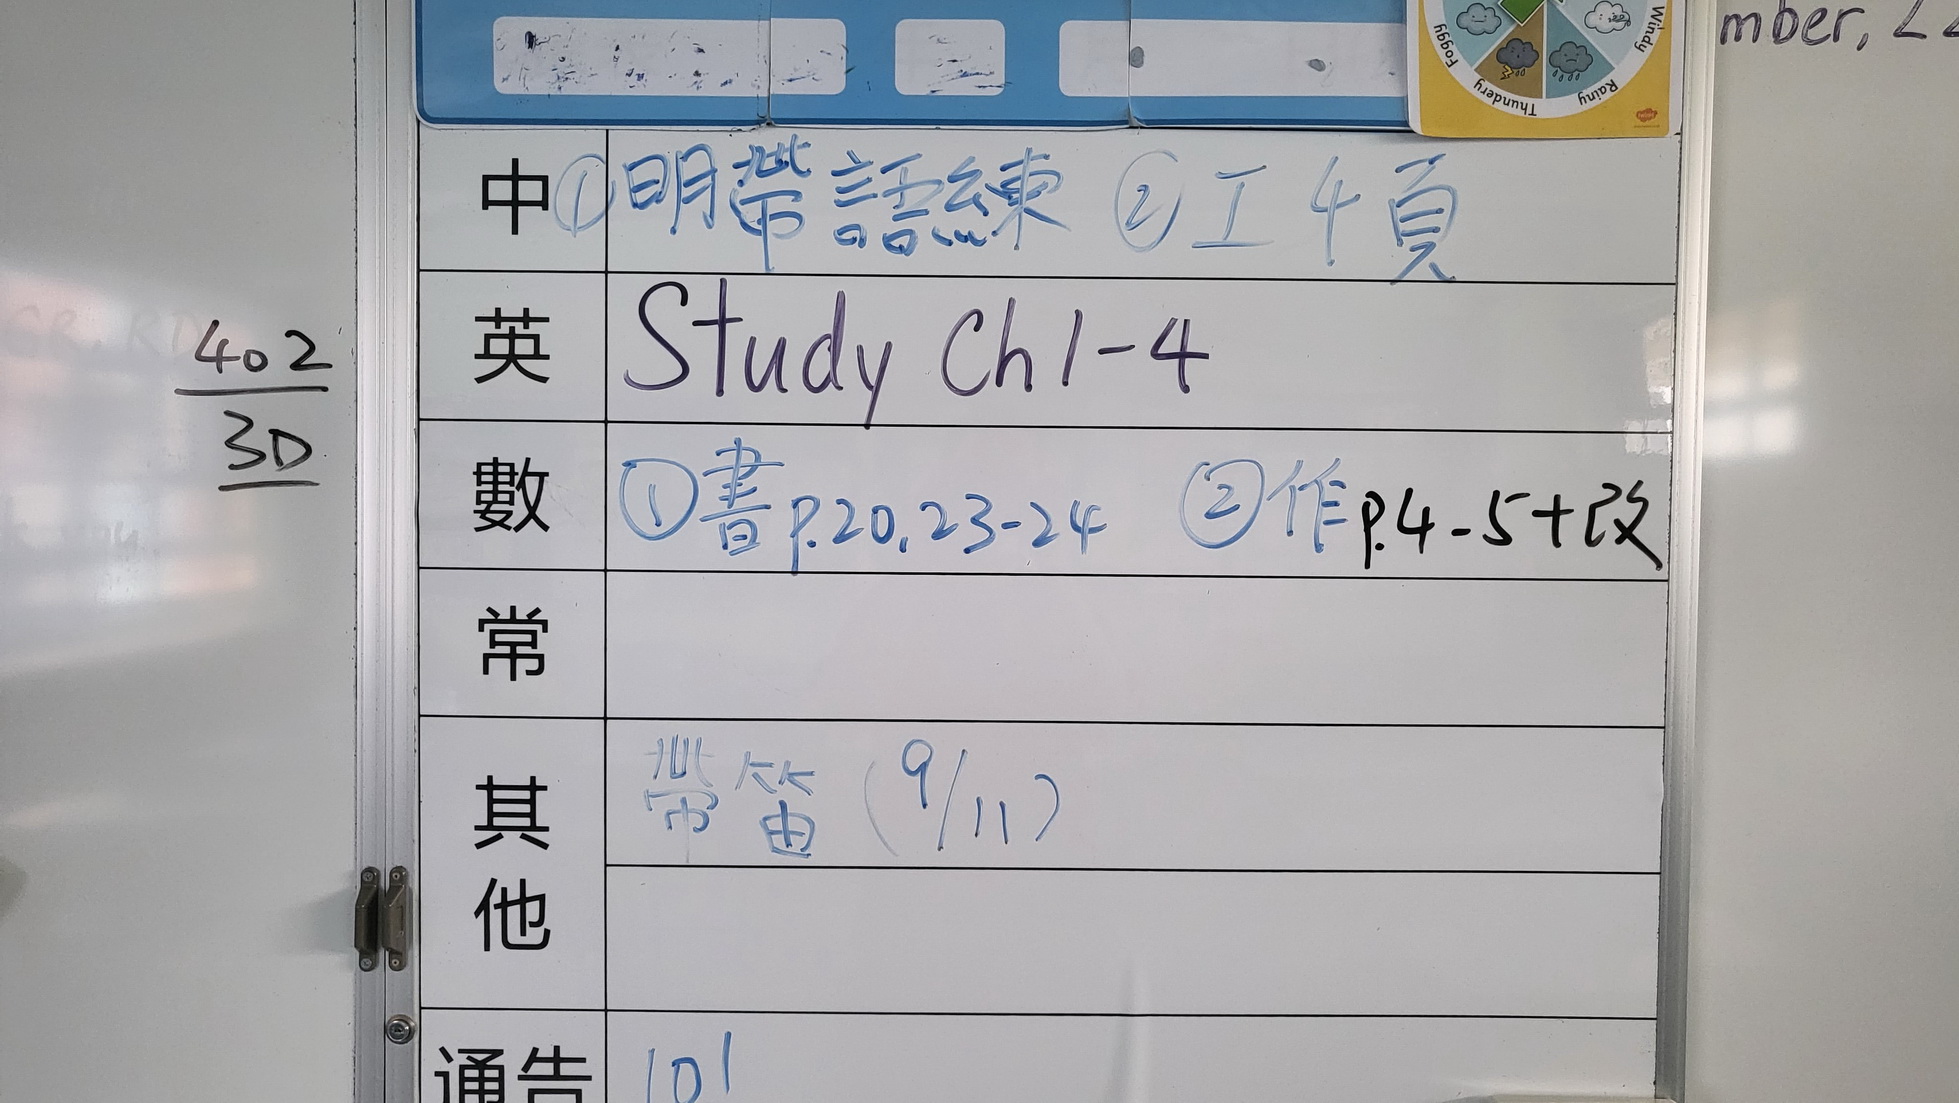 Foggy Thundery Rainy Windy
mber, 22
中 ①明帶語練 ②工4頁
英 Study Ch 1-4
402
3D
數 ①書p.20,23-24 ②作p.4-5+改
常
其他 帶笛(9/11)
通告 101